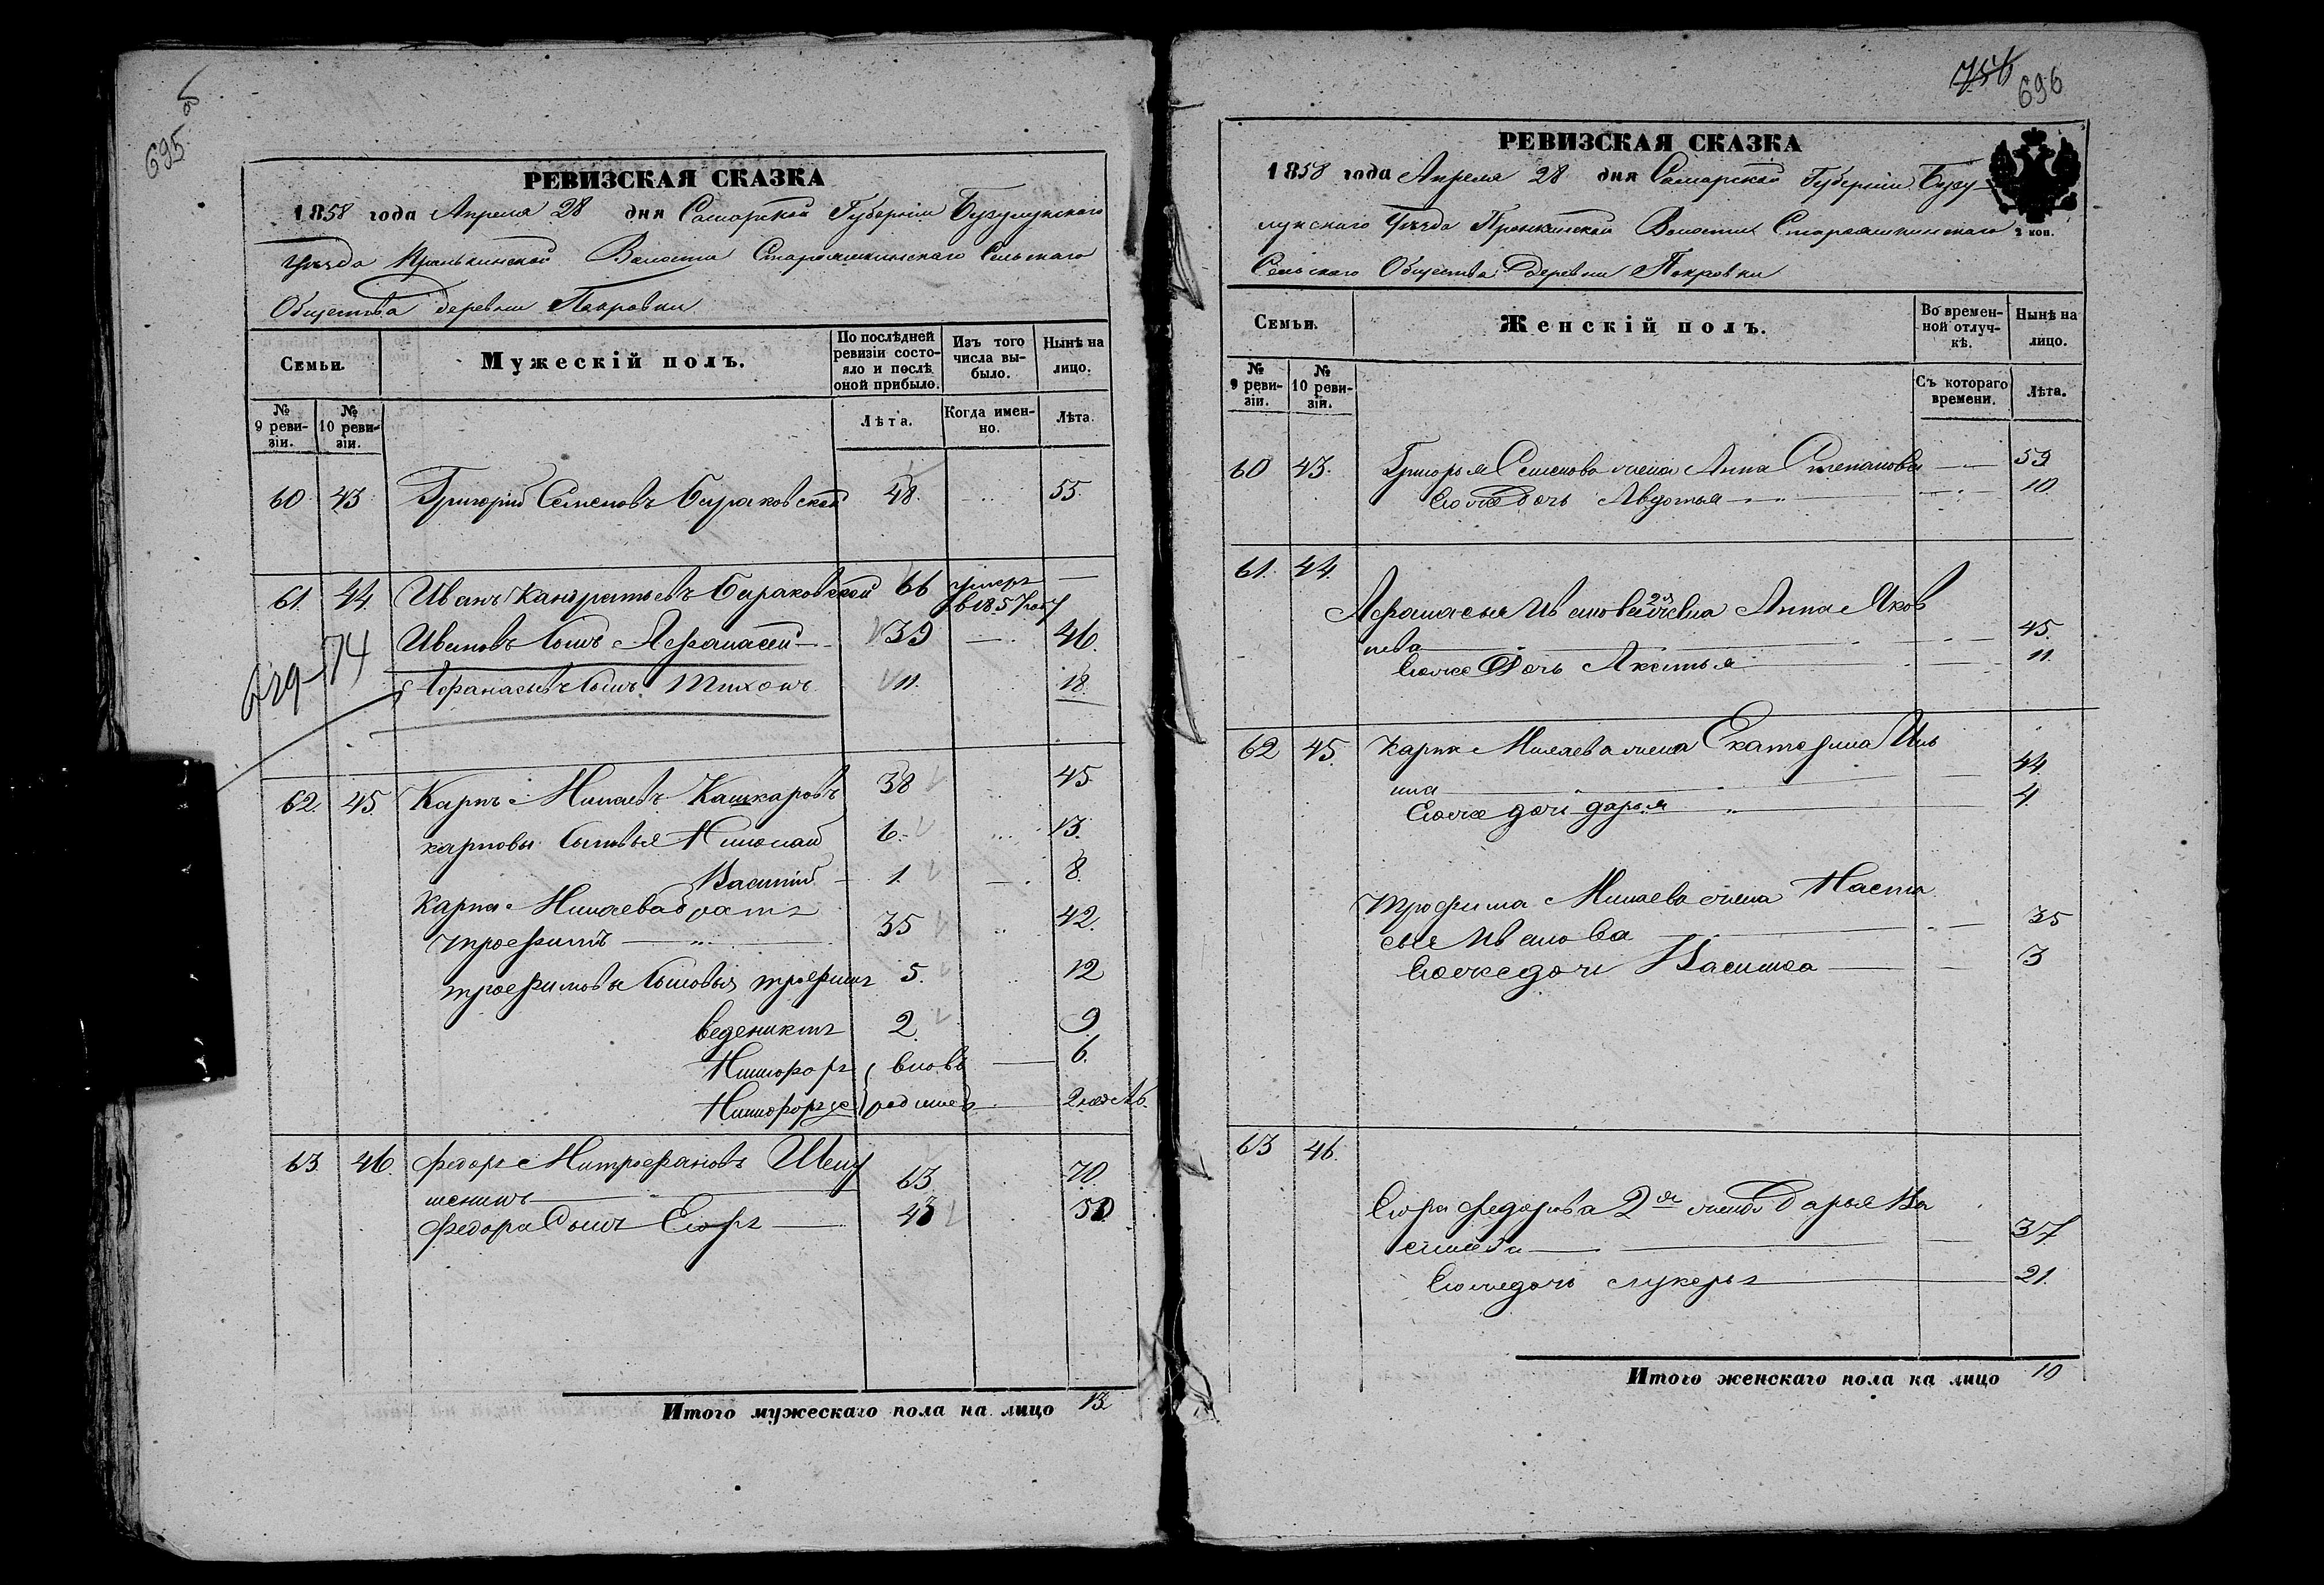 695 об
РЕВИЗСКАЯ СКАЗКА
1858 года Апреля 28 дня Самарской Губерніи Бузулукскаго
Уѣзда Пронькинской Волости Староашкинскаго Сельскаго
Общества деревни Покровки
Семьи.
Мужескій полъ.
По послѣдней ревизіи состояло и послѣ оной прибыло.
Изъ того числа выбыло.
Нынѣ на лицо.
№ 9 ревизіи.
№ 10 ревизіи.
Лѣта.
Когда именно.
Лѣта.
60 43 Григорій Семеновъ 48. 55.
61. 44. Иванъ Кандратьевъ 66 умеръ в 1857 году —
Ивановъ сынъ Афанасей 39 — 46.
Афанасьевъ сынъ Тихонъ 11. 18.
62. 45. Карпъ Минаевъ Кашкаровъ 38 45.
карповы сыновья Николай 6. 13.
Василій 1. 8.
Карпа Минаева братъ
трофимъ 35 42.
трофимовы сыновья трофимъ 5. 12
ведениктъ 2. 9.
Никифоръ вновь 6.
Никифоръ же родились 2 недѣль
63 46 федоръ Митрофановъ
63 70.
Федора сынъ Егоръ 43 50
Итого мужескаго пола на лицо 13
756 696
РЕВИЗСКАЯ СКАЗКА
1858 года Апреля 28 дня Самарской Губерніи Бузу
лукскаго Уѣзда Пронкинской Волости Староашкинскаго
2 коп.
Сельскаго Общества Деревни Покровки
Семьи.
Женскій полъ.
Во временной отлучкѣ.
Нынѣ на лицо.
№ 9 ревизіи.
№ 10 ревизіи.
Съ котораго времени.
Лѣта.
60 43. Григорья Семенова жена Анна Степанова 59
Его же дочь Авдотья 10.
61. 44.
Афанасья Иванова жена Анна Яков
лева 45.
Его же Дочь Аксинья 11.
62 45. Карпа Минаева жена Екатерина Иль
ина 44.
Его же дочь дарья 4.
Трофима Минаева жена Наста
сья Иванова 35
Его же дочь Василиса 3
63 46.
Егора федорова 2я жена Дарья Ва
сильева 37.
Его же дочь лукерья 21.
Итого женскаго пола на лицо 10